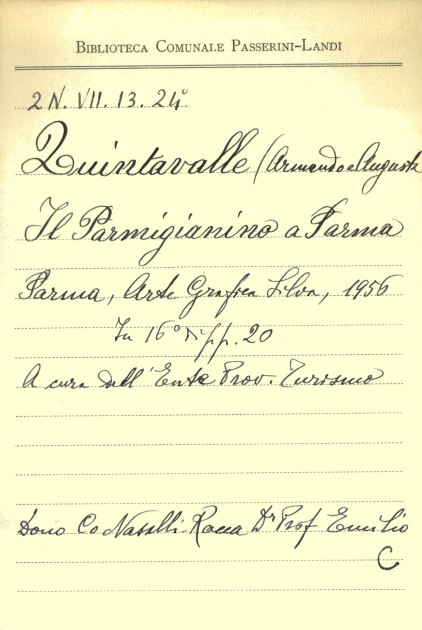 BIBLIOTECA COMUNALE PASSERINI-LANDI
2 N. VII. 13. 24°
Quintavalle (Armando e Augusta
Il Parmigianino a Parma
Parma, Arte Grafica Silva, 1956
In 16° di pp. 20
A cura dell'Ente Prov. Turismo
Dono Co Nasalli-Rocca Dr Prof Emilio
C